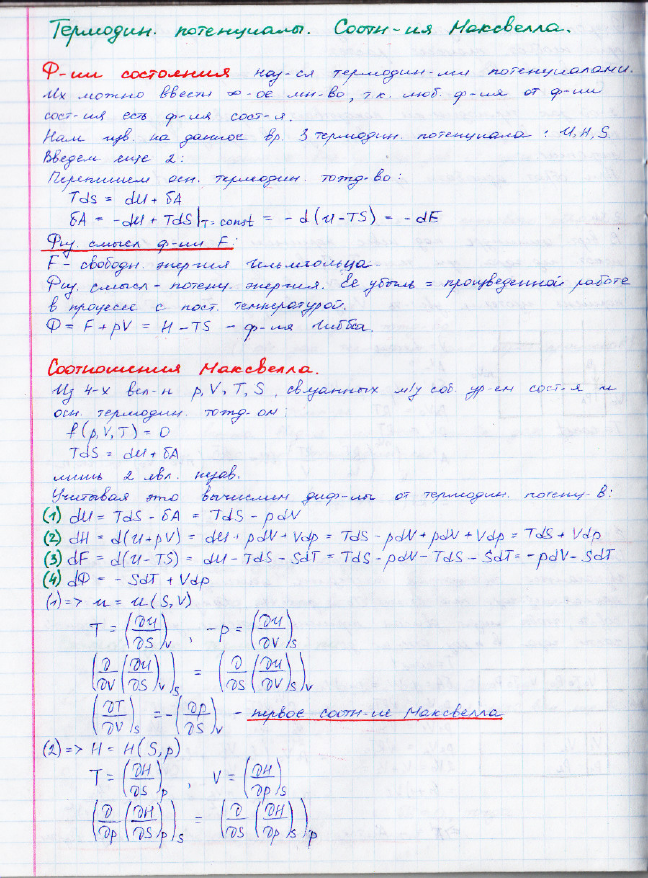 Термодин. потенциалы. Соотн-ия Максвелла.
Ф-ии состояния наз-ся термодин-ми потенциалами.
Их можно ввести ∞-ое мн-во, т.к. люб. ф-ия от ф-ии
сост-ия есть ф-ия сост-я.
Нам изв. на данное вр. 3 термодин. потенциала: U, H, S.
Введем еще 2:
Перепишем осн. термодин. тожд-во:
TdS = dU + δA
δA = -dU + TdS|T=const = -d(U-TS) = -dF
Физ. смысл ф-ии F:
F - свободн. энергия Гельмгольца
Физ. смысл - потенц. энергия. Ее убыль = произведенной работе
в процессе с пост. температурой.
Φ = F + pV = H - TS - ф-ия Гиббса.
Соотношения Максвелла.
Из 4-х вел-н p, V, T, S, связанных м/у соб. ур-ем сост-я и
осн. термодин. тожд-ом:
f(p, V, T) = 0
TdS = dU + δA
лишь 2 явл. незав.
Учитывая это вычислим диф-лы от термодин. потенц-в:
(1) dU = TdS - δA = TdS - pdV
(2) dH = d(U+pV) = dU + pdV + Vdp = TdS - pdV + pdV + Vdp = TdS + Vdp
(3) dF = d(U-TS) = dU - TdS - SdT = TdS - pdV - TdS - SdT = -pdV - SdT
(4) dΦ = -SdT + Vdp
(1) => U = U(S, V)
T = (∂U/∂S)_V , -p = (∂U/∂V)_S
(∂/∂V (∂U/∂S)_V)_S = (∂/∂S (∂U/∂V)_S)_V
(∂T/∂V)_S = -(∂p/∂S)_V - первое соотн-ие Максвелла
(2) => H = H(S, p)
T = (∂H/∂S)_p , V = (∂H/∂p)_S
(∂/∂p (∂H/∂S)_p)_S = (∂/∂S (∂H/∂p)_S)_p